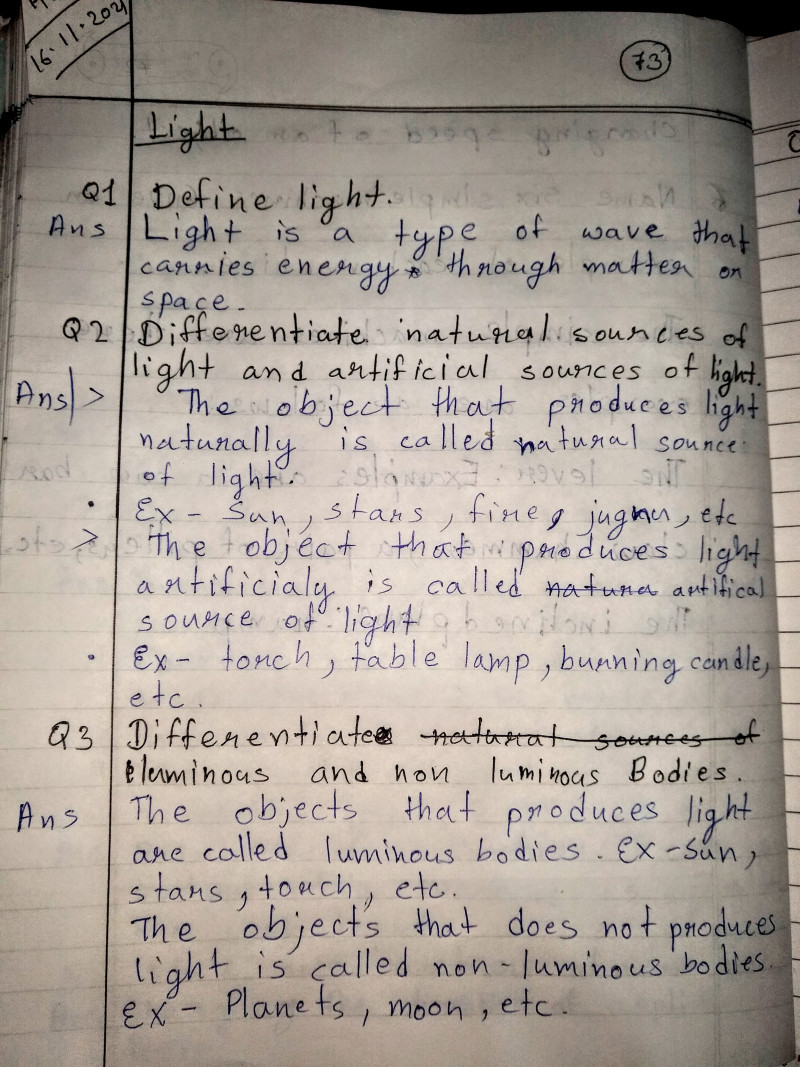 16.11.2021
73
Light
Q1 Define light.
Ans Light is a type of wave that
carries energy through matter or
space.
Q2 Differentiate natural sources of
light and artificial sources of light.
Ans > The object that produces light
naturally is called natural source
of light.
• Ex - Sun, stars, fire, jugnu, etc
> The object that produces light
artificialy is called natura artifical
source of light
• Ex - torch, table lamp, burning candle,
etc.
Q3 Differentiate natural sources of
luminous and non luminous Bodies.
Ans The objects that produces light
are called luminous bodies. Ex - Sun,
stars, torch, etc.
The objects that does not produces
light is called non-luminous bodies.
Ex - Planets, moon, etc.